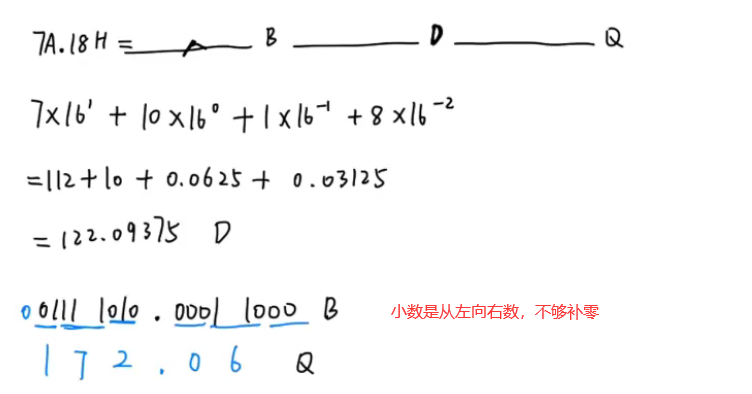 7A.18H = ________ B ________ D ________ Q
7×16¹ + 10×16⁰ + 1×16⁻¹ + 8×16⁻²
=112+10 + 0.0625 + 0.03125
= 122.09375 D
00111 1010 . 0001 1000 B 小数是从左向右数，不够补零
1 7 2 . 0 6 Q